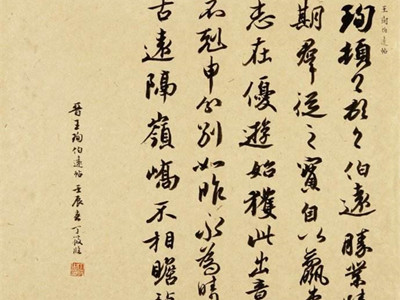 王珣伯遠帖
珣頓首頓首伯遠勝業
期羣從之寶自以羸
志在優遊始獲此出意
不剋申分別如昨永為疇
古遠隔嶺嶠不相瞻
晉王珣伯遠帖 壬辰